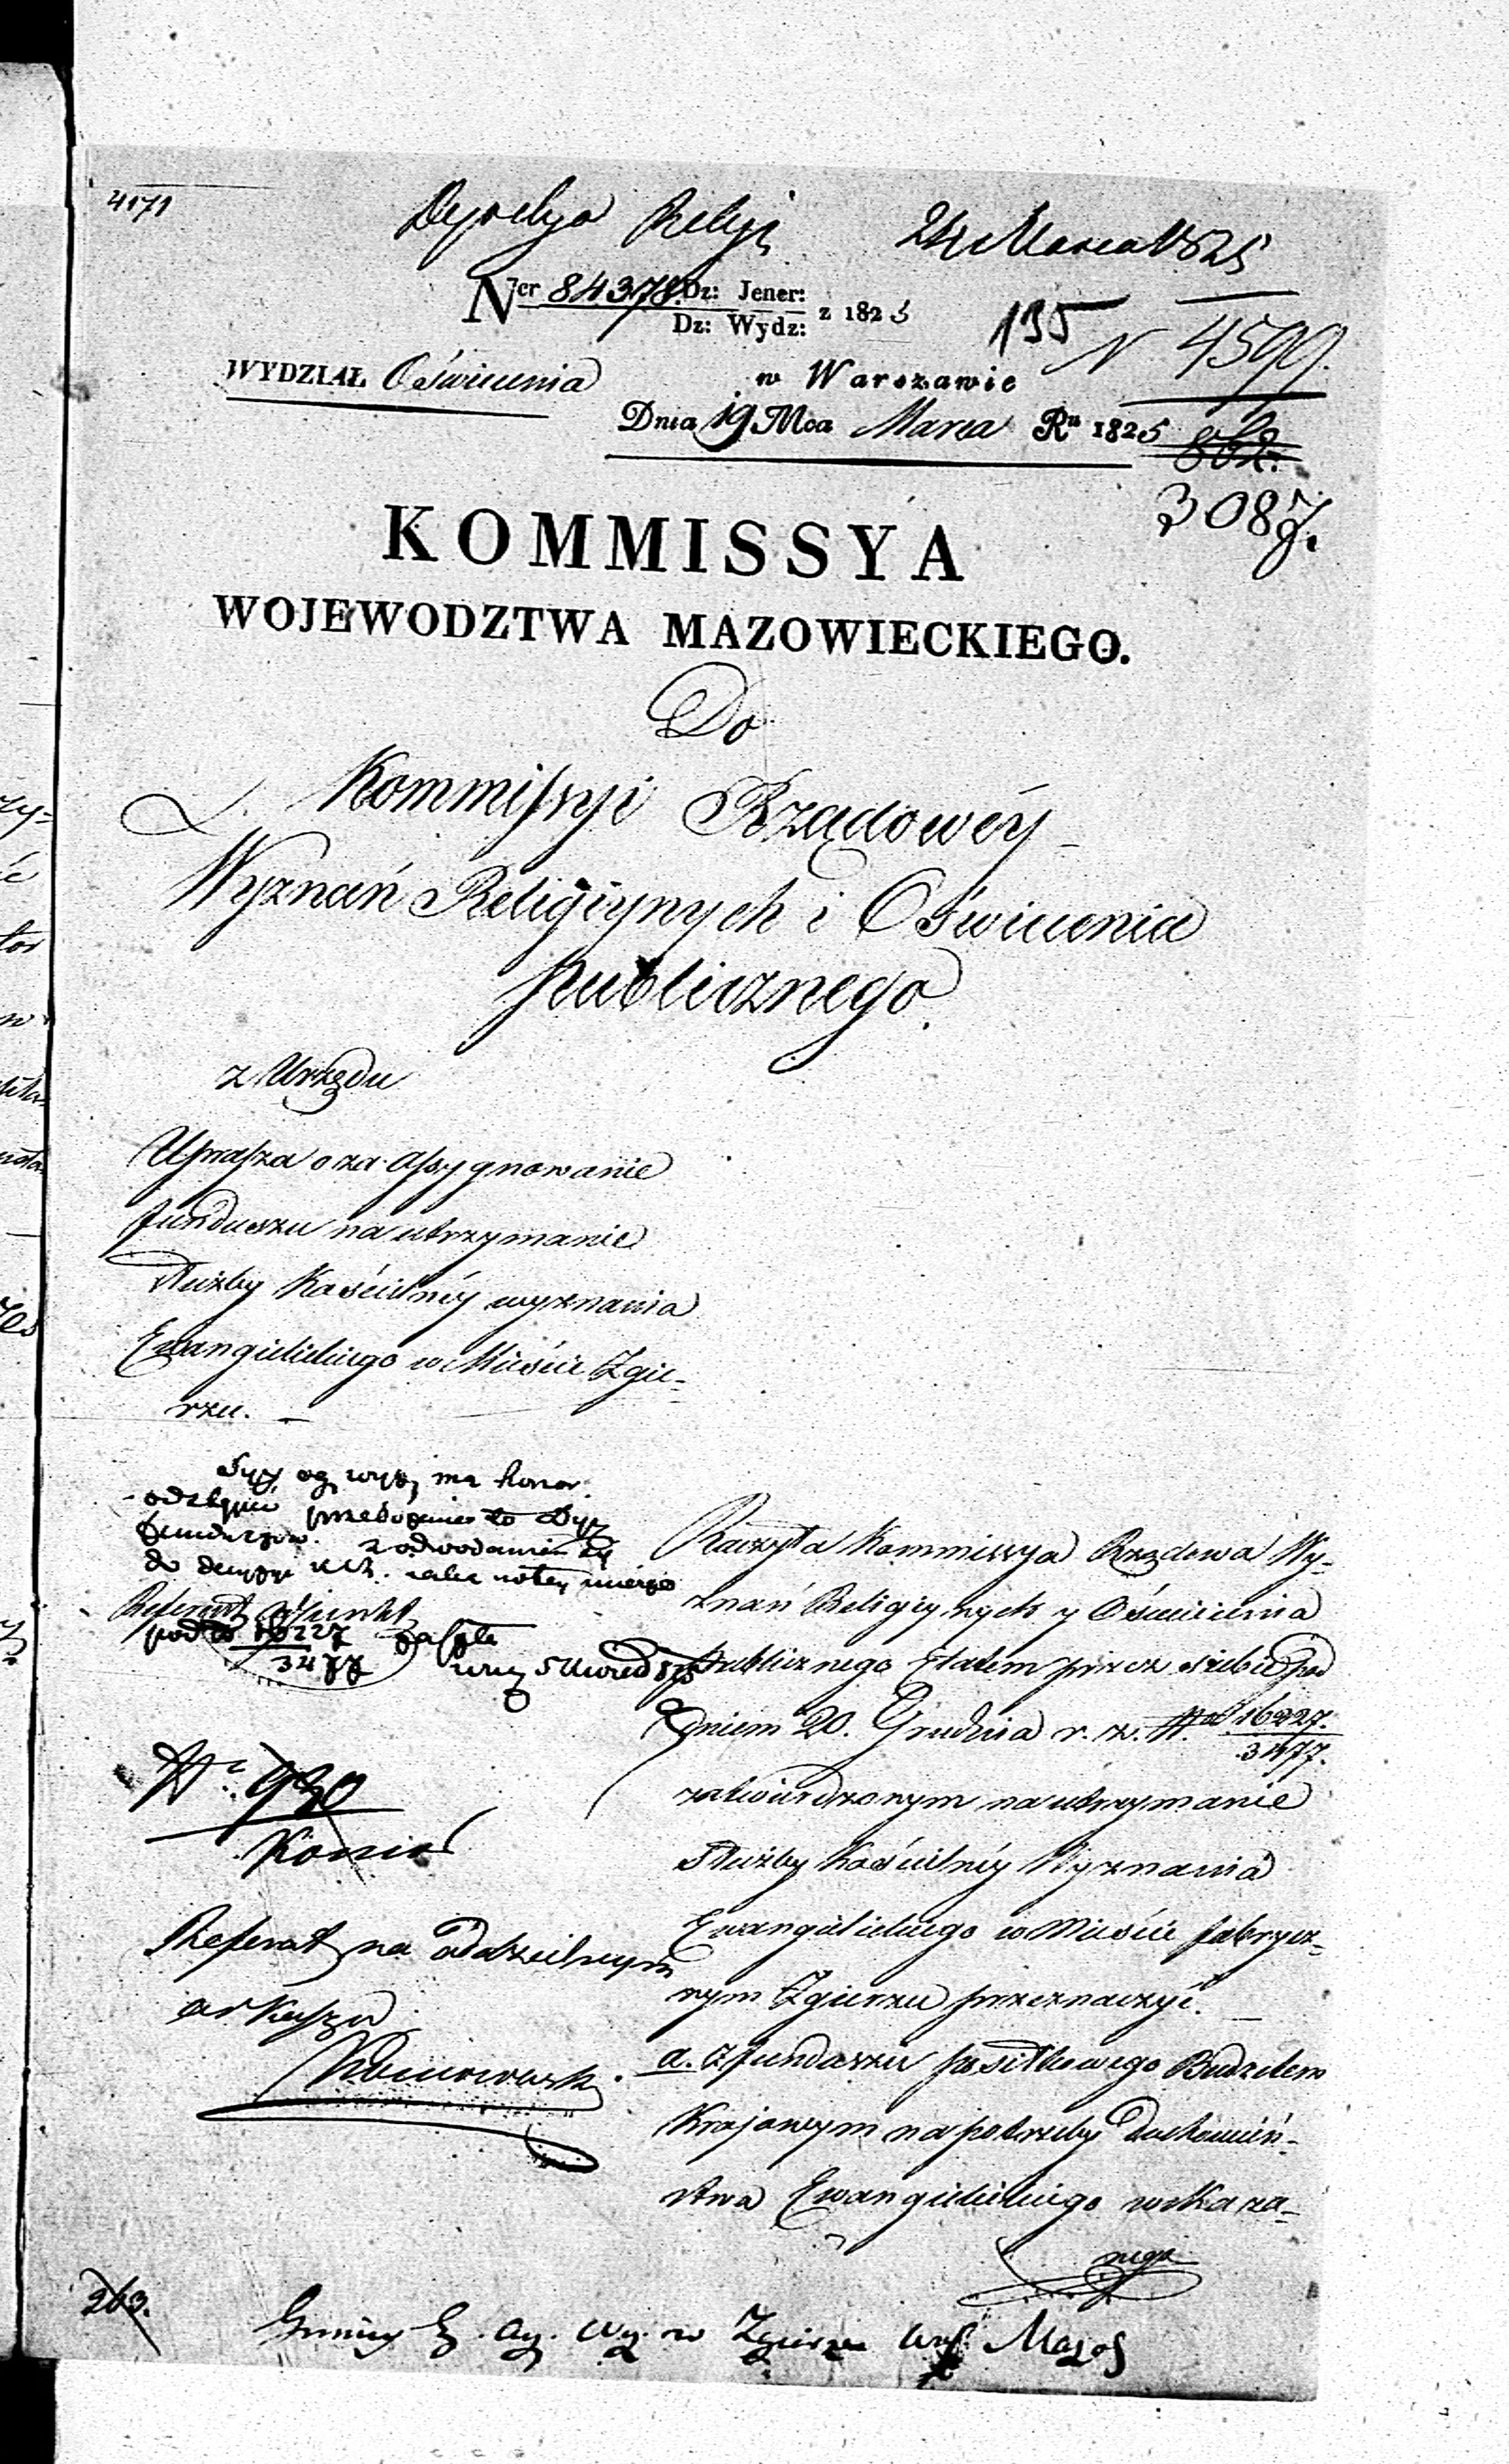 4171
Dyrekcya Religij 24 Marca 1825
Ner 84378. Dz: Jener:
Dz: Wydz: z 1825
135
N 4599.
WYDZIAŁ Oświecenia
w Warszawie
Dnia 19 Mca Marca Ru 1825
3087.
KOMMISSYA
WOJEWODZTWA MAZOWIECKIEGO.
Do
Kommissyi Rządowéy
Wyznań Religiynych i Oświecenia
publicznego.
z Urzędu
Uprasza o za assygnowanie
funduszu na utrzymanie
służby Kościelnéy wyznania
Ewangielickiego w Mieście Zgie-
rzu. -
ma honor
do Dyr
Funduszów.
Referent
3477
Nr. 930
Referat na oddzielnym
arkuszu
Raczyła Kommissya Rządowa Wy-
znań Religiynych y Oświecenia
publicznego Etatem przez siebie pod
dniem 20. Grudnia r. z. N. 16227.
3477.
zatwierdzonym na utrzymanie
służby Kościelnéy Wyznania
Ewangielickiego w Mieście fabrycz-
nym Zgierzu przeznaczyć.
a. z funduszu posiłkowego Budżetem
Krajowym na potrzeby Duchowień-
stwa Ewangielickiego wskaza-
nego
263.
Gminy E. Au. Wy. w Zgierzu Maz